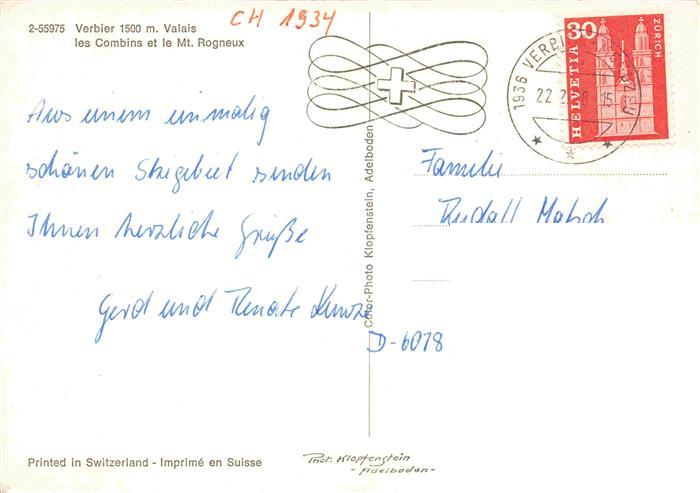 CH 1934
2-55975 Verbier 1500 m. Valais
les Combins et le Mt. Rogneux
30
HELVETIA
ZÜRICH
1936 VERBIER
22.
15
Aus einem einmalig
schönen Skigebiet senden
Ihnen herzliche Grüße
Gerd und Renate
Familie
Rudolf
D-6078
Color-Photo Klopfenstein, Adelboden
Printed in Switzerland - Imprimé en Suisse
Phot. Klopfenstein
- Adelboden -